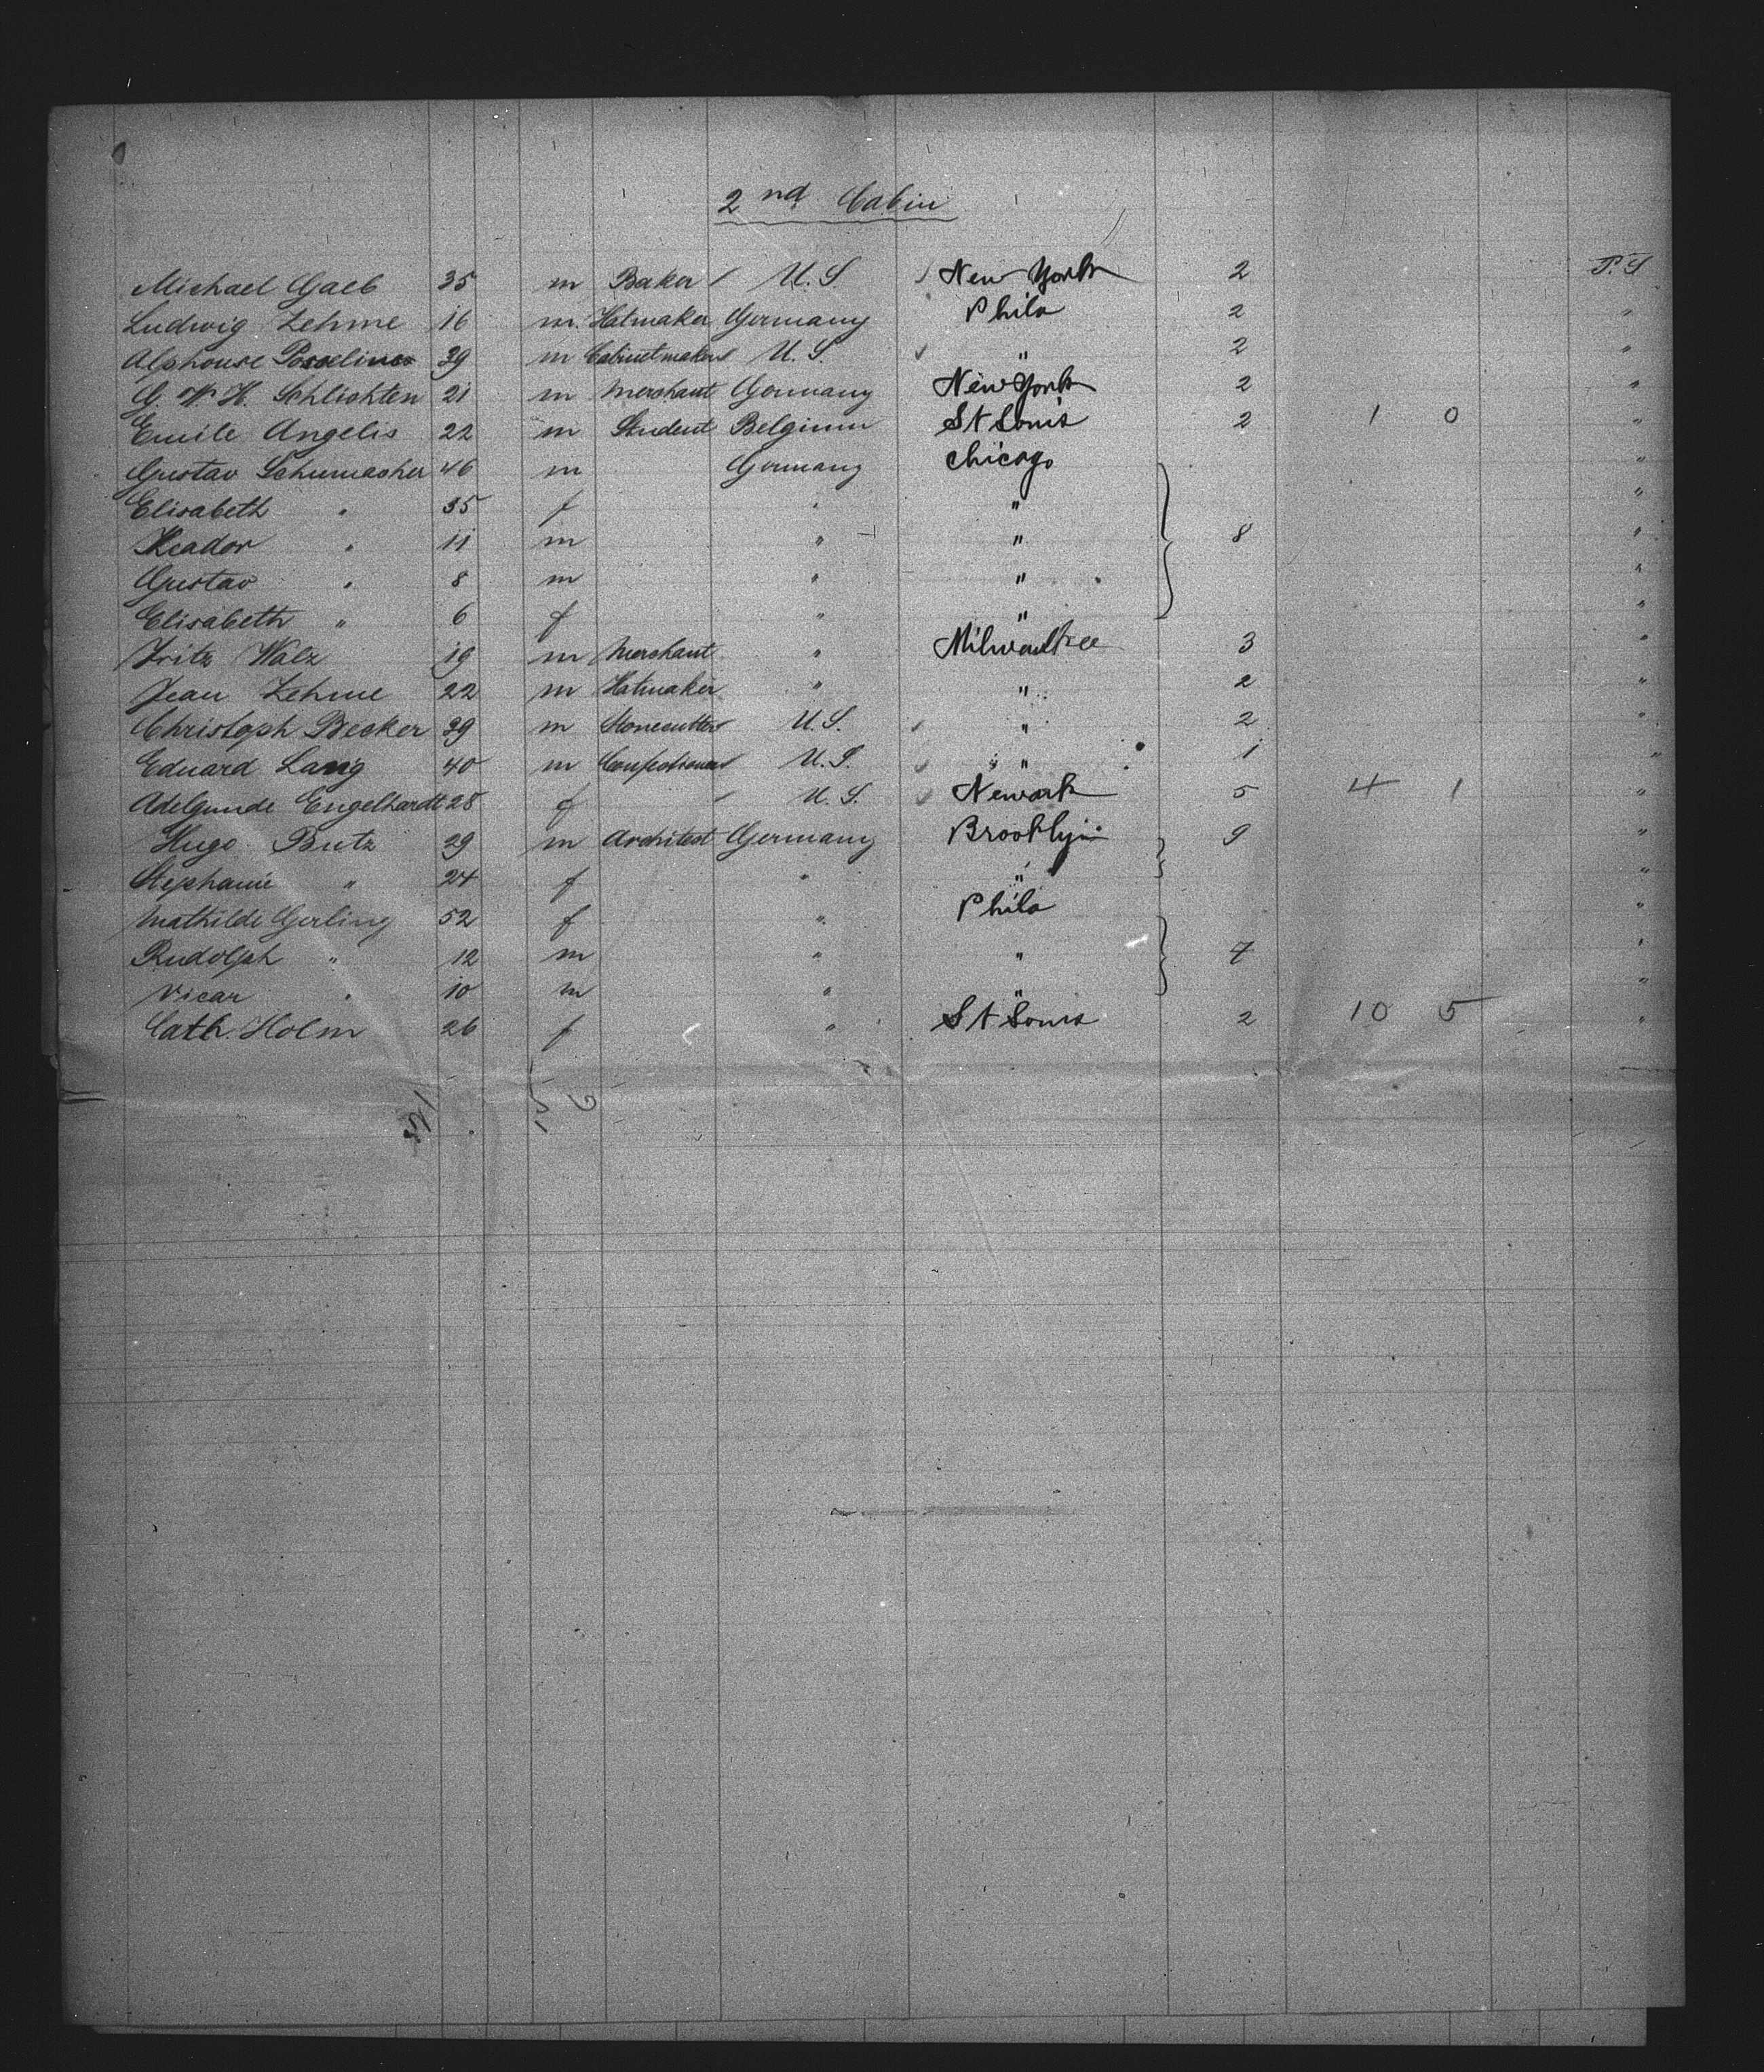 2nd Cabin
Michael Gaeb 35 m Baker U.S. New York 2 P.S
Ludwig Lehme 16 m. Hatmaker Germany Phila 2 "
Alphonse 39 m Cabinetmaker U.S. " 2 "
G. W. H. Schlichten 21 m Merchant Germany New York 2 "
Emile Angelis 22 m Student Belgium St Louis 2 1 0 "
Gustav Schumacher 46 m Germany Chicago "
Elisabeth " 35 f " " "
" 11 m " " 8 "
Gustav " 8 m " " "
Elisabeth " 6 f " " "
Fritz Walz 19 m Merchant " Milwaukee 3 "
Jean Lehme 22 m Hatmaker " " 2 "
Christoph Becker 39 m Stonecutter U.S. " 2 "
Eduard Lang 40 m Confectioner U.S. " 1 "
Adelgunde Engelhardt 28 f U.S. Newark 5 4 1 "
Hugo Butz 29 m Architect Germany Brooklyn 9 "
Stephanie " 24 f " " "
Mathilde Gerling 52 f " Phila "
Rudolph " 12 m " " 7 "
Vicar " 10 m " " "
Cath. Holm 26 f " St Louis 2 10 5 "